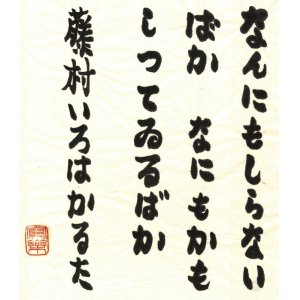 なんにもしらない
ばか なにもかも
しつてゐるばか
藤村いろはかるた